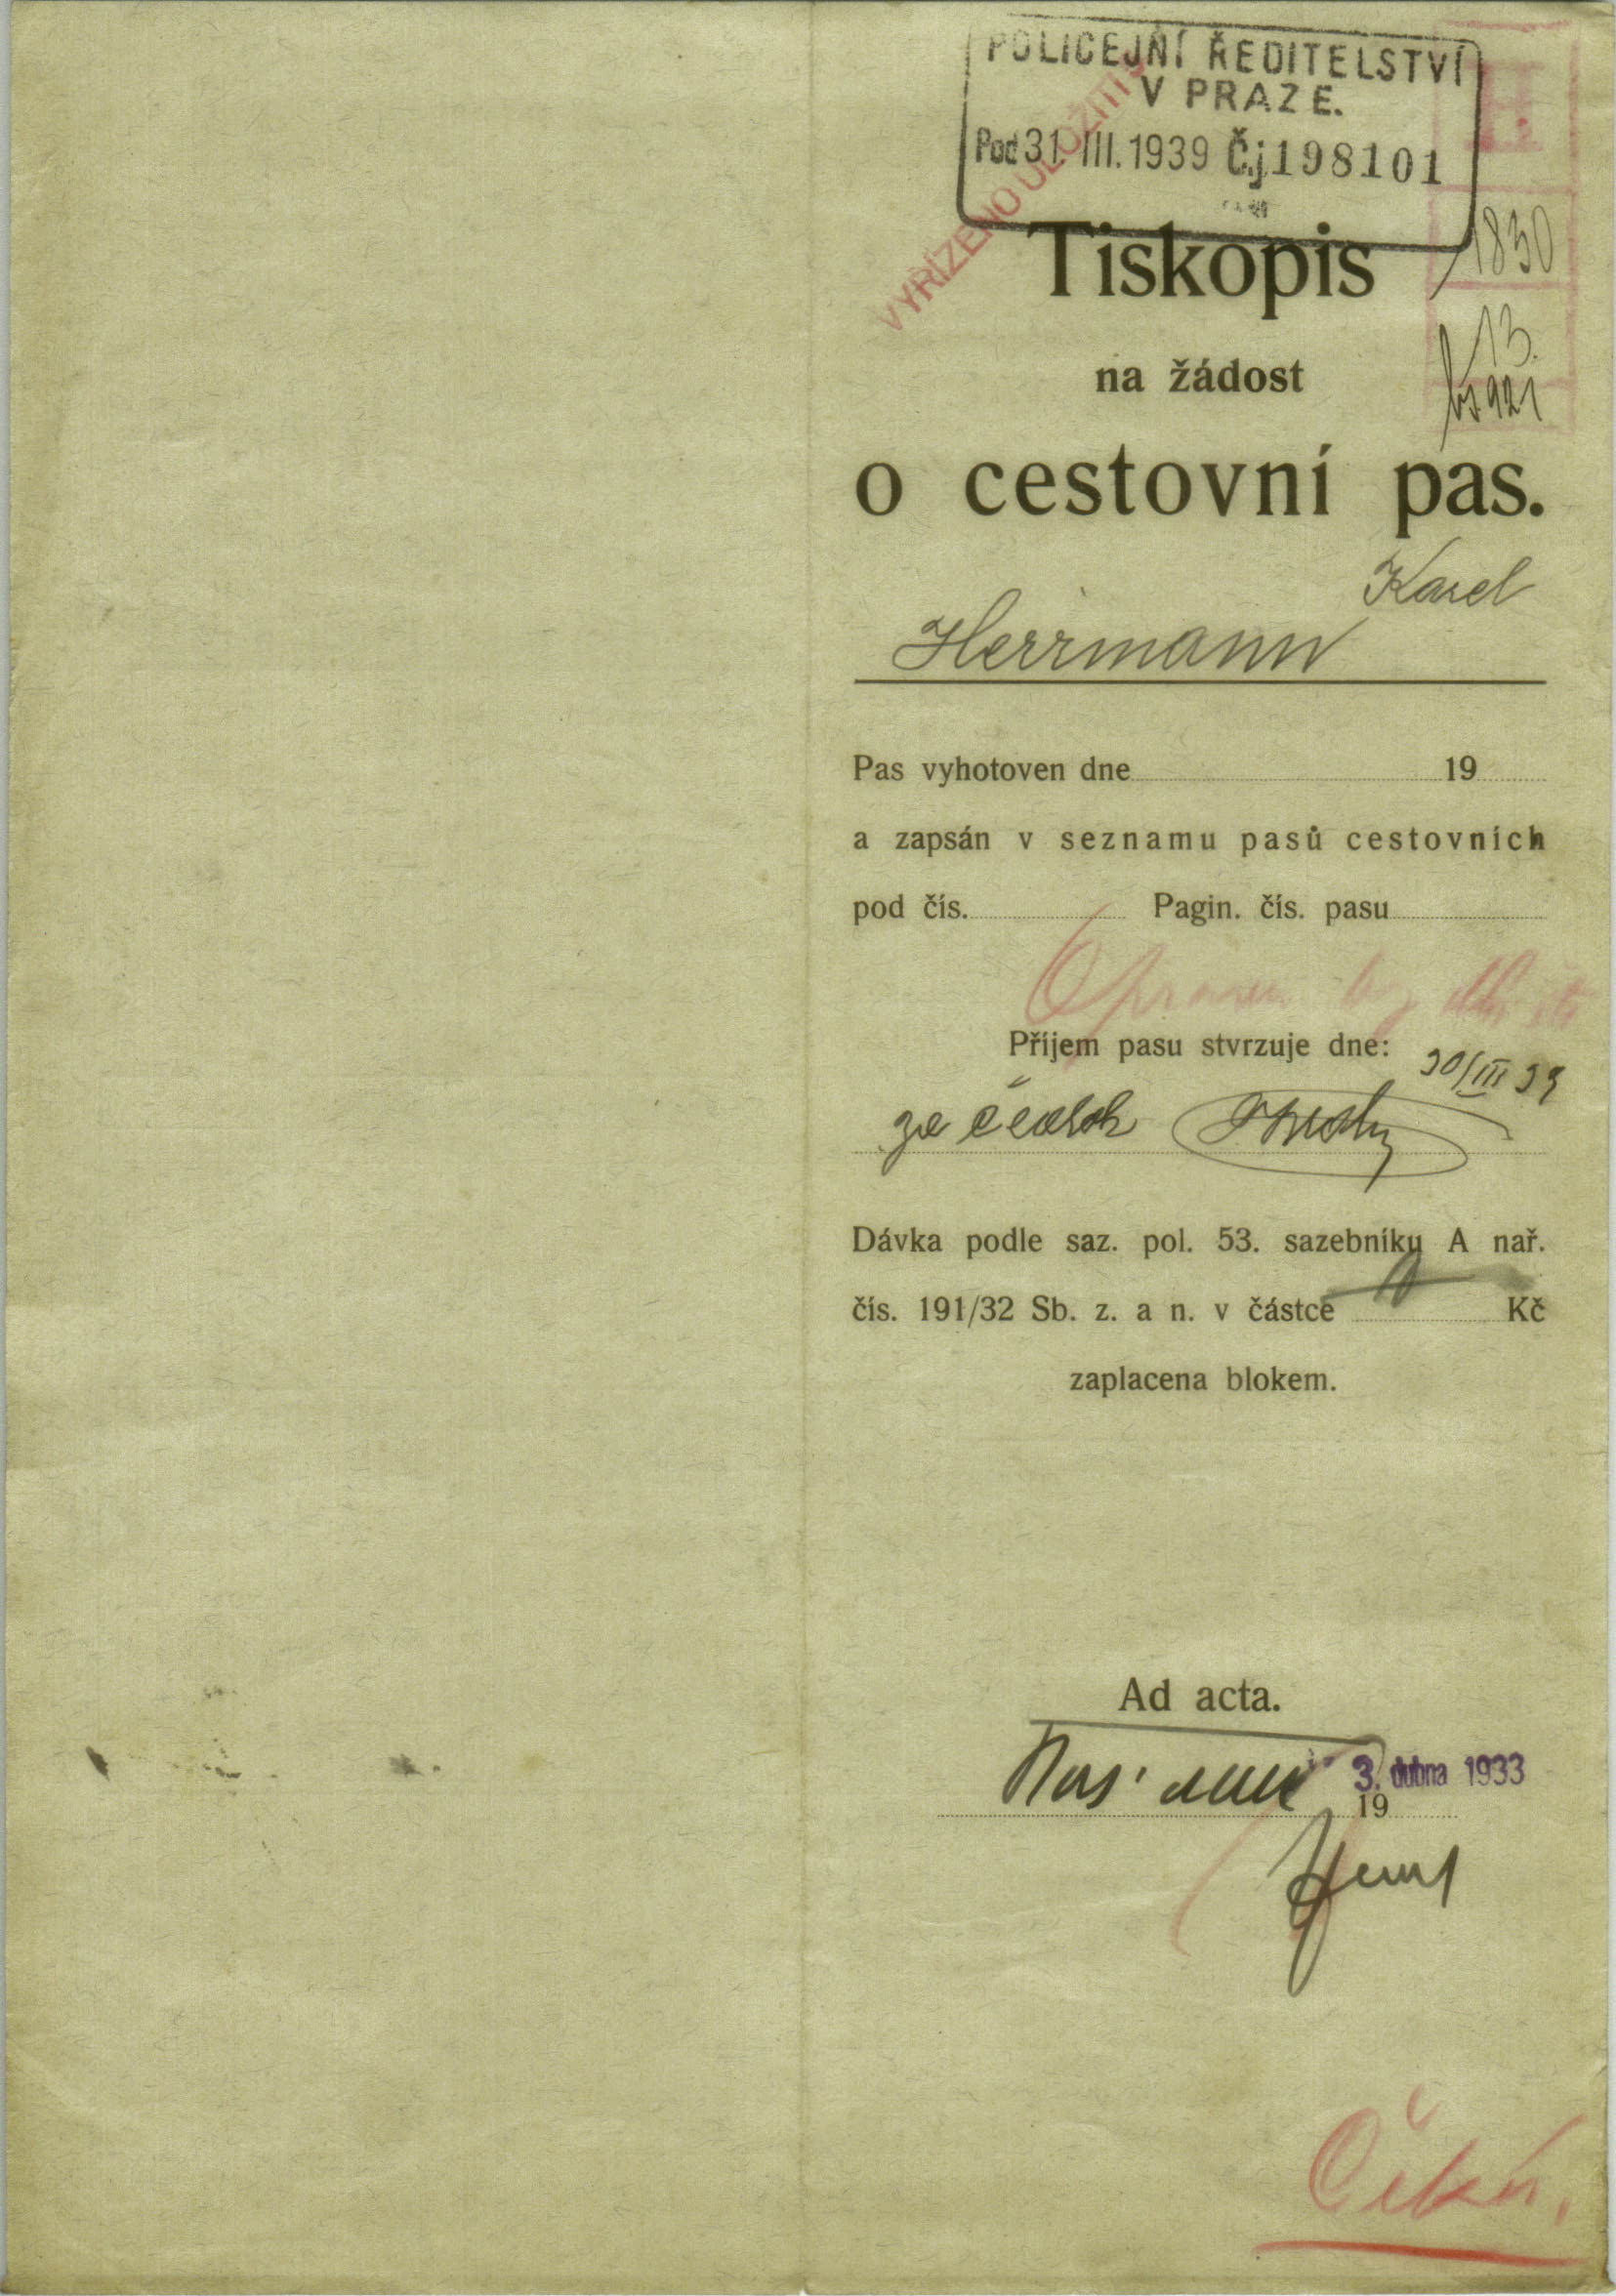 POLICEJNÍ ŘEDITELSTVÍ
V PRAZE.
Pod 31. III. 1939 Čj 198101
VYŘÍZENO ULOŽITI
H
1830
13.
921
Tiskopis
na žádost
o cestovní pas.
Karel
Herrmann
Pas vyhotoven dne 19
a zapsán v seznamu pasů cestovních
pod čís. Pagin. čís. pasu
Příjem pasu stvrzuje dne:
30/III 39
za
Dávka podle saz. pol. 53. sazebníku A nař.
čís. 191/32 Sb. z. a n. v částce Kč
zaplacena blokem.
Ad acta.
3. dubna 1933
19